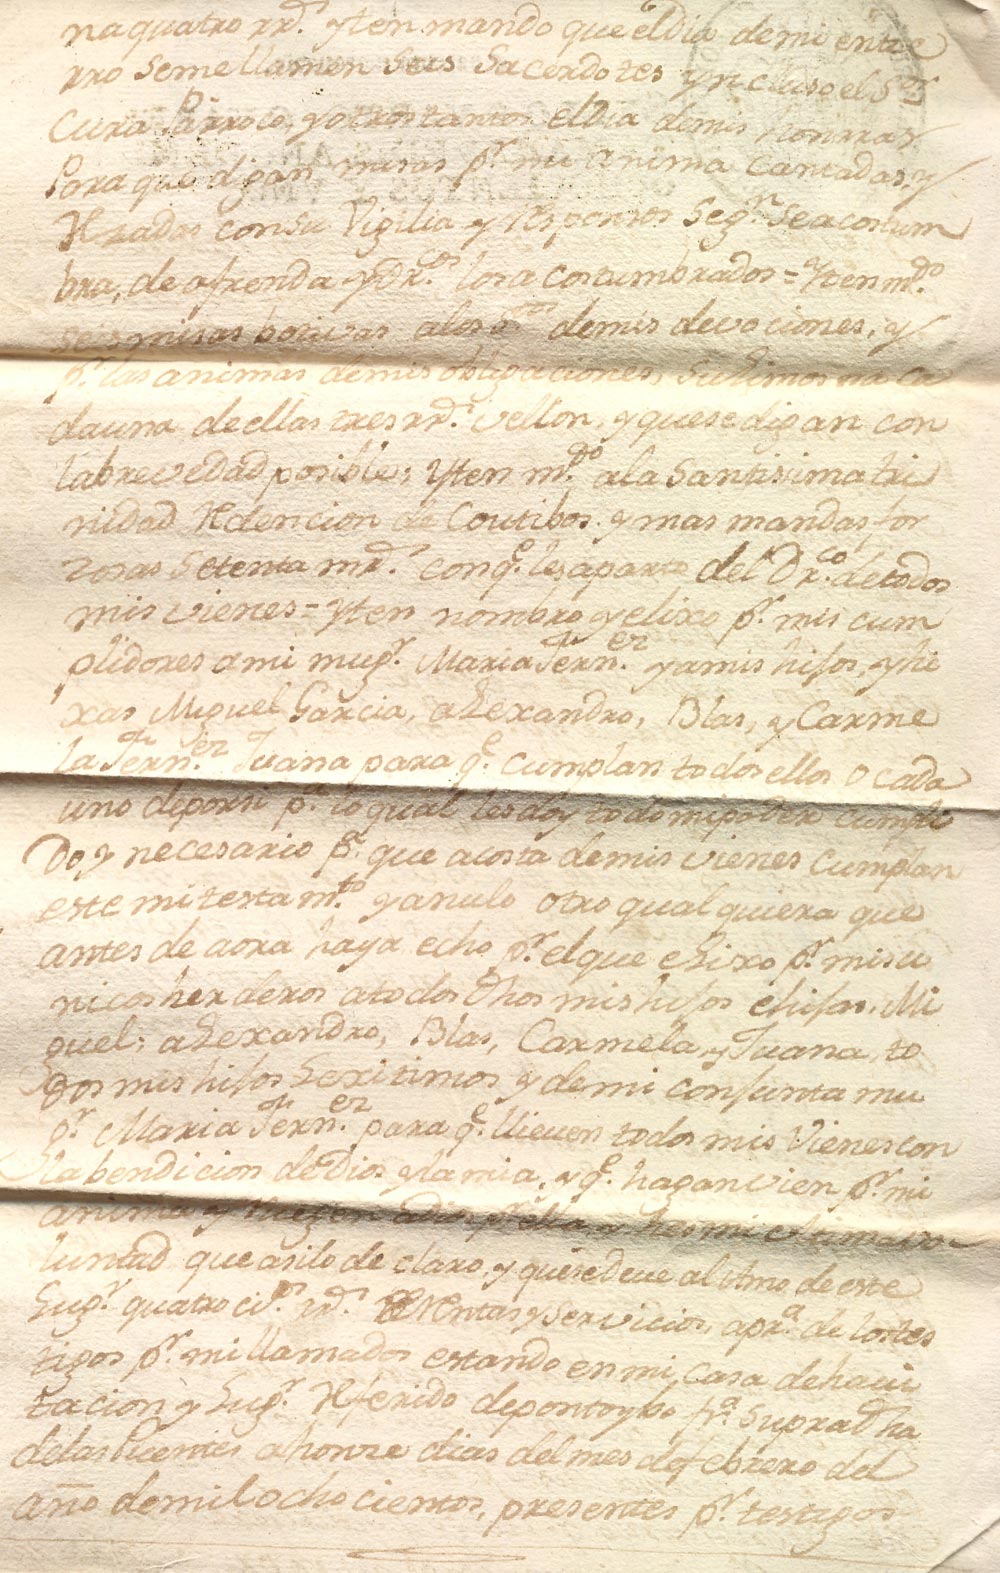 na quatro rr.s yten mando que el dia de mi entie
rro se me llamen seis Sacerdotes yncluso el S.or
Cura Párroco, y otros tantos el dia de mis honrras
Para que digan misas p.r mi anima Cantadas, y
Rezadas con su Vigilia y Responsos seg.n se acostum
bra, de ofrenda y Dr.os los acostumbrados = Yten m.do
seis misas botivas a los S.tos de mis devociones, y
p.r las animas de mis obligaciones, su limosna ca
da una de ellas tres rr.s vellon, y que se digan con
la brevedad posible; Yten m.do a la Santisima tri
nidad Redencion de Coutibos y mas mandas for
zosas setenta mr.s con q.e les aparto del Dr.co de todos
mis vienes = yten nombro y elixo p.r mis cum
plidores a mi mug.r Maria Fern.ez y a mis hijos, y hi
xas Miguel Garcia, alexandro, Blas, y Carme
la Fern.ez Juana para q.e cumplan todos ellos o cada
uno de por si p.a lo qual les doy todo mi poder cumpli
do y necesario p.a que a costa de mis vienes cumplan
este mi testam.to y anulo otro qual quiera que
antes de aora haya echo p.r el que elixo p.r mis u
nicos herederos a todos dhos mis hijos e hijas. Mi
guel; alexandro, Blas, Carmela, y Juana, to
dos mis hijos lexitimos y de mi conjunta mu
g.r Maria Fern.ez para q.e lleven todos mis vienes con
la bendicion de Dios y la mia, y q.e hagan vien p.r mi
anima y rueguen a dios p.r ella, y hes mi ultima vo
luntad que asi lo declaro, y que se deve al Amo de este
Lug.r quatro ci.os rr.s de Rentas y servicios, a pr.a de los tes
tigos p.r mi llamados estando en mi casa de havi
tacion y Lug.r Referido de pontoybo fr.a supradha
de las Puentes a honze dias del mes de febrero del
año de mil ocho cientos, presentes p.r testigos